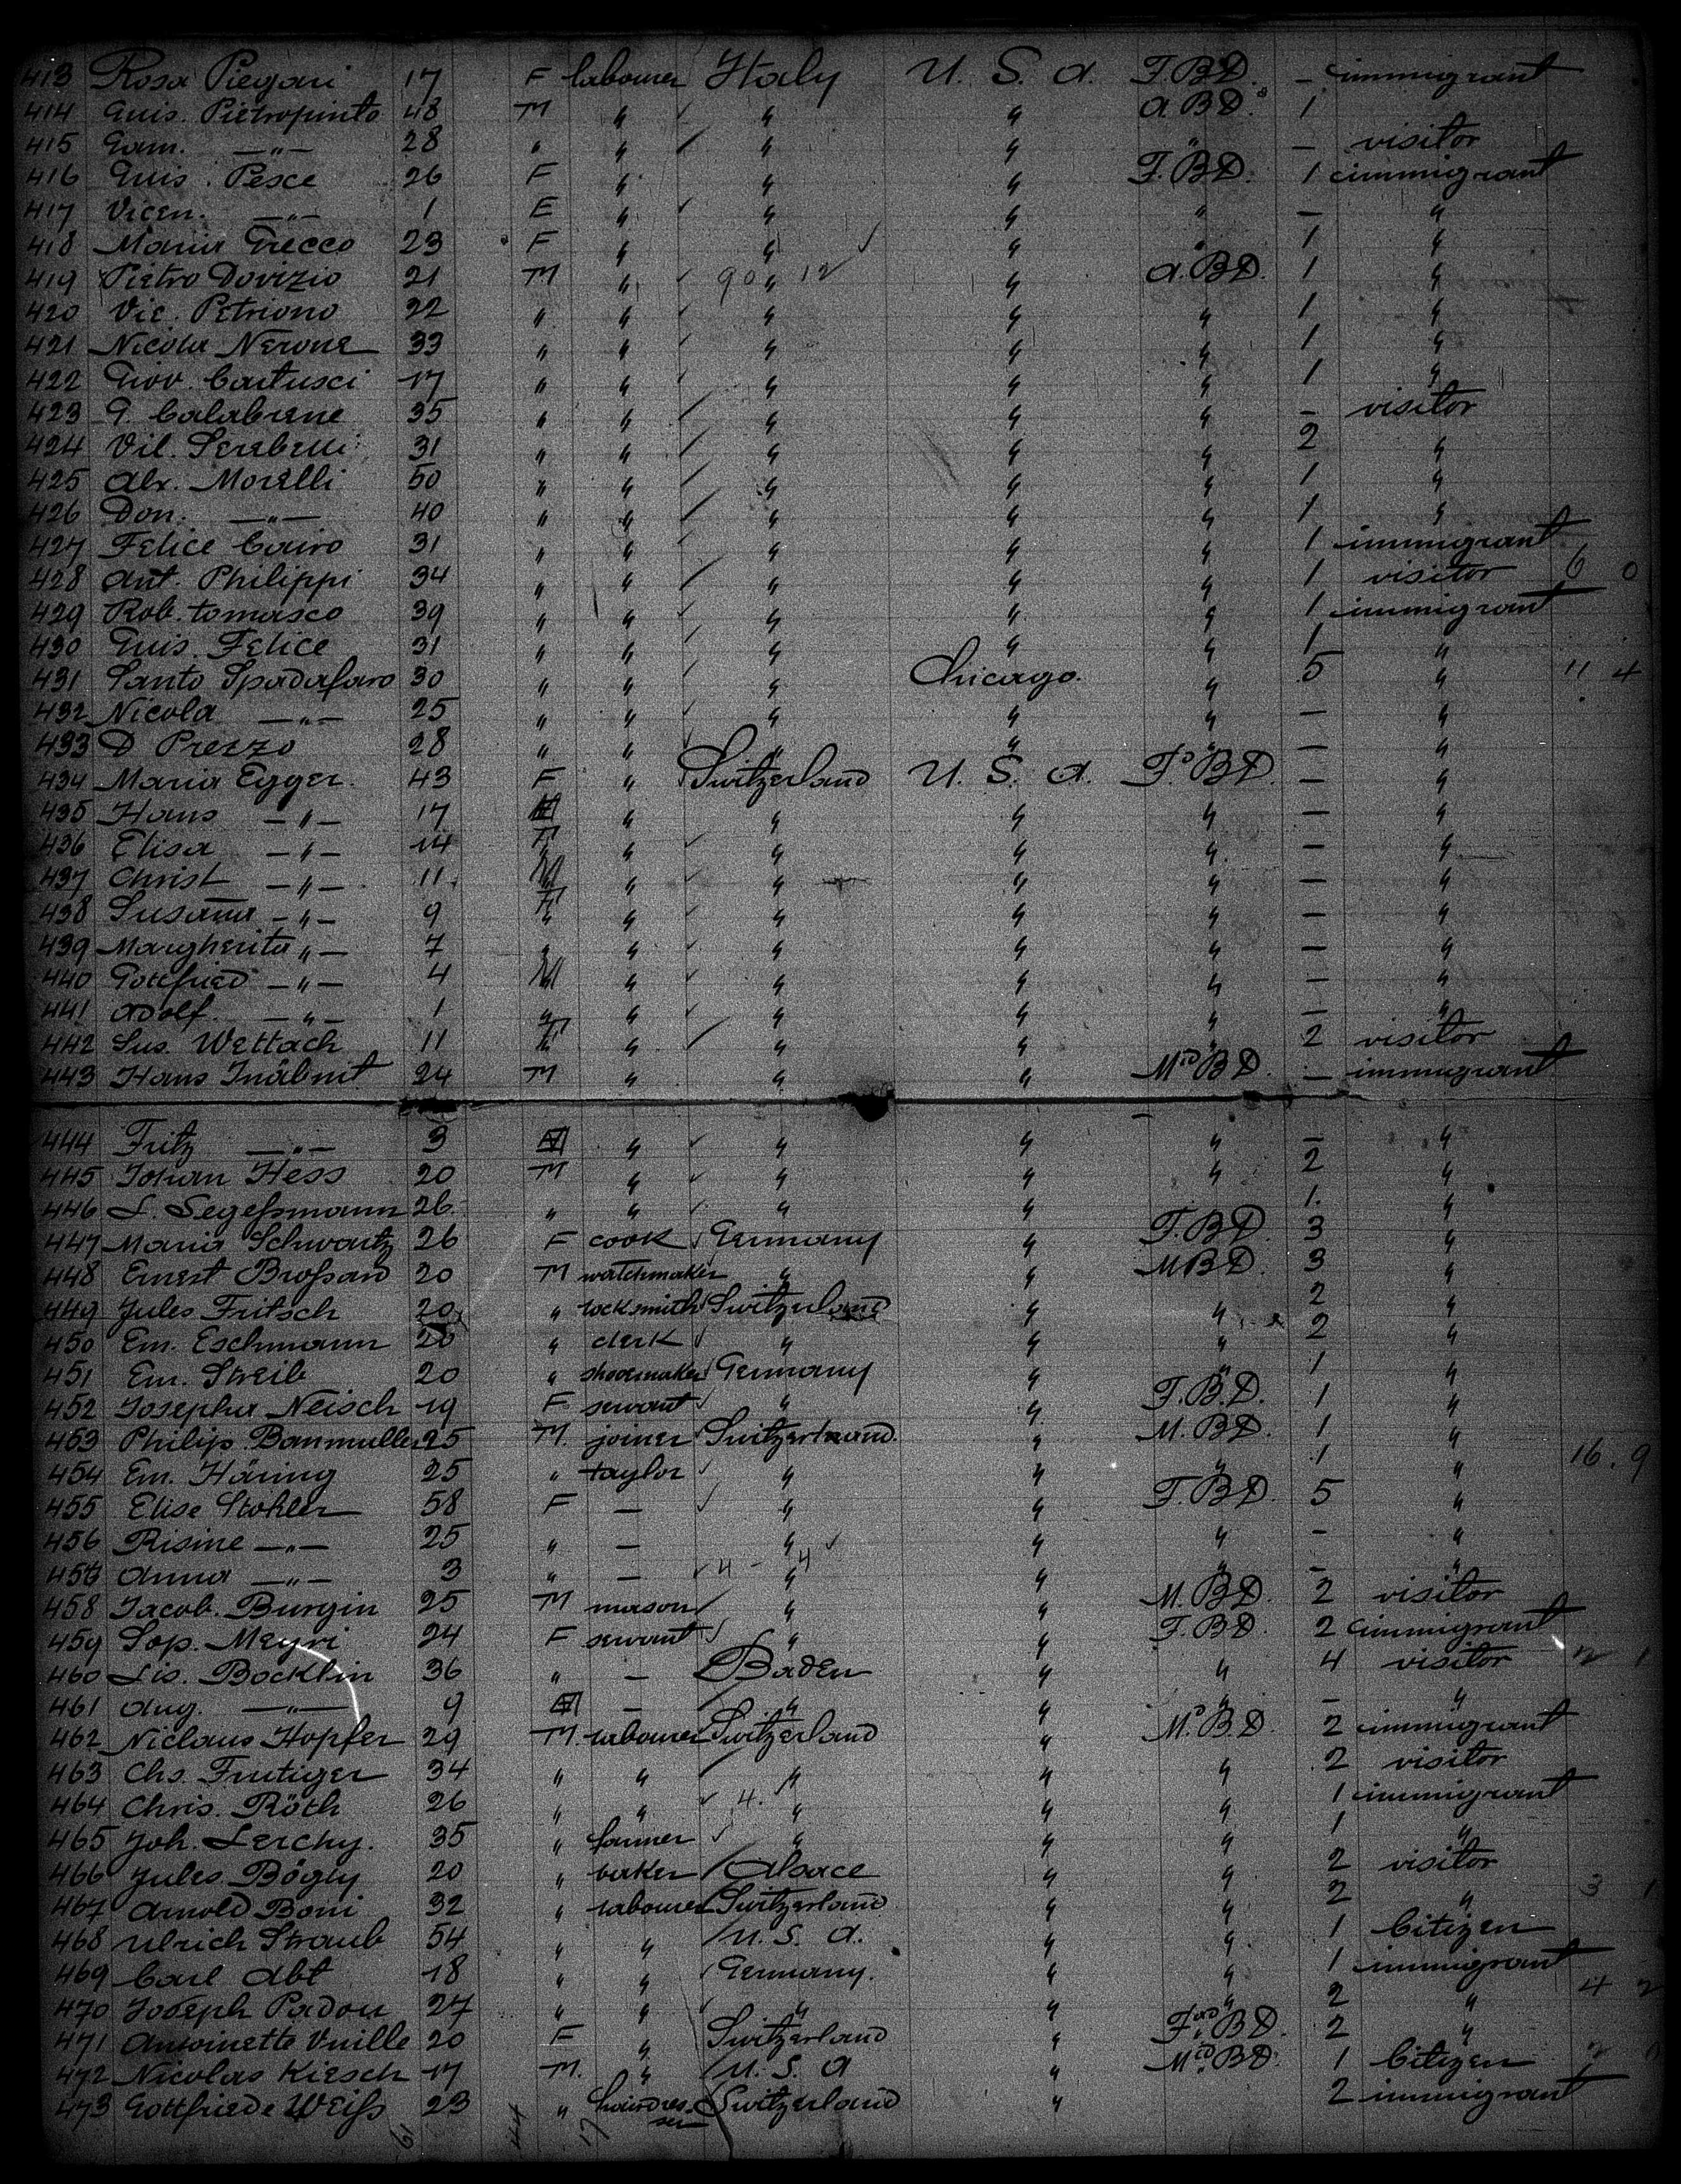 413 Rosa Piegari 17 F labourer Italy U. S. A. F.BD. — immigrant
414 Guis. Pietropinto 48 M " " " A BD. 1
415 Gam. —"— 28 " " " " " — visitor
416 Guis. Pesce 26 F " " " F.BD. 1 immigrant
417 Vicen. —"— 1 F " " " " — "
418 Maria Grecco 23 F " " " " 1 "
419 Pietro Dovizio 21 M " 90 " 12 " A.BD. 1 "
420 Vic. Petriono 22 " " " " " 1 "
421 Nicola Nerone 33 " " " " " 1 "
422 Giov. Cartusci 17 " " " " " 1 "
423 G. Calabrene 35 " " " " " — visitor
424 Vil. 31 " " " " " 2 "
425 Alr. Morelli 50 " " " " " 1 "
426 Don. —"— 40 " " " " " 1 "
427 Felice Cairo 31 " " " " " 1 immigrant
428 Ant. Philippi 34 " " " " " 1 visitor 6 0
429 Rob. tomasco 39 " " " " " 1 immigrant
430 Guis. Felice 31 " " " " " 1 "
431 Santo Spadafaro 30 " " " Chicago. " 5 " 11 4
432 Nicola —"— 25 " " " " " — "
433 D Prezzo 28 " " " " " — "
434 Maria Egger. 43 F " Switzerland U. S. A. F.BD. — "
435 Hans —"— 17 M " " " " — "
436 Elisa —"— 14 F " " " " — "
437 Christ —"— 11 M " " " " — "
438 Susanna —"— 9 F " " " " — "
439 Margherita "— 7 " " " " " — "
440 Gottfried —"— 4 M " " " " — "
441 Adolf. —"— 1 " " " " " — "
442 Sus. Wettach 11 F " " " " 2 visitor
443 Hans Inäbnit 24 M " " " M BD. — immigrant
444 Fritz —"— 3 M " " " " — "
445 Johan Hess 20 M " " " " 2 "
446 L. Segeßmann 26 " " " " 1. "
447 Maria Schwartz 26 F cook Germany " F.BD. 3 "
448 Ernest Broßard 20 M watchmaker " " MBD. 3 "
449 Jules Fritsch 20 " locksmith Switzerland " " 2 "
450 Em. Eschmann 20 " clerk " " " 2 "
451 Em. Streib 20 " shoemaker Germany " " 1 "
452 Josepha Neisch 19 F servant " " F.B.D. 1 "
453 Philip. Banmuller 25 M. joiner Switzerland. " M. BD. 1 "
454 Em. Häring 25 " taylor " " " 1 " 16. 9
455 Elise Stohler 58 F — " " F.BD. 5 "
456 Risine —"— 25 " — " " " — "
457 Anna —"— 3 " — 4 - 4 " " " — "
458 Jacob. Burgin 25 M mason " " M.BD. 2 visitor
459 Sop. Meyri 24 F servant " " F.BD. 2 immigrant
460 Lis. Bocklin 36 " — Baden " " 4 visitor 2 1
461 Aug. —"— 9 M — " " " — "
462 Niclaus Hopfer 29 M. labourer Switzerland " M.B.D. 2 immigrant
463 Chs. Frutiger 34 " " " " " 2 visitor
464 Chris. Röth 26 " " 4. " " " 1 immigrant
465 Joh. Lerchy. 35 " farmer " " " 1 "
466 Jules Bögly 20 " baker Alsace " " 2 visitor
467 Arnold Boni 32 " labourer Switzerland " " 2 " 3 1
468 Ulrich Straub 54 " " U. S. A. " " 1 Citizen
469 Carl Abt 18 " " Germany. " " 1 immigrant
470 Joseph Padou 27 " " " " " 2 " 4 2
471 Antoinette Vuille 20 F " Switzerland " F BD. 2 "
472 Nicolas Kiesch 17 M. " U. S. A " M BD. 1 Citizen
473 Gottfriede Weiß 23 " hairdres-ser Switzerland " 2 immigrant
61 44 17